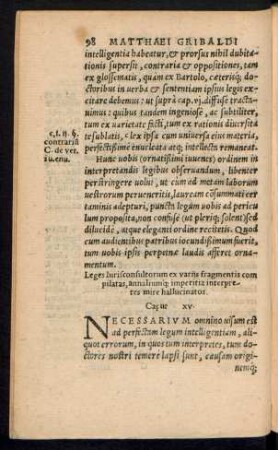 98 MATTHAEI GRIBALDI
intelligentia habeatur, & prorsus nihil dubitationis supersit, contraria & oppositiones, tam
ex glossematis, quàm ex Bartolo, caeterisq; doctoribus in uerba & sententiam ipsius legis excitare debemus: ut suprà cap. vj. diffuse tractauimus: quibus tandem ingeniosè, ac subtiliter,
tum ex uarietate facti, tum ex rationis diuersitate sublatis, & lex ipsa cum uniuersa eius materia,
perfectissimè enucleata atq; intellecta remaneat.
c, l. ij. §.
contrariũ
C. de vet.
iu. enu.
Hunc uobis (ornatissimi iuuenes) ordinem in
interpretandis legibus obseruandum, libenter
perstringere uolui, ut cum ad metam laborum
uestrorum perueneritis, lauream coronam & certaminis adepturi, puncta legum uobis ad periculum proposita, non confusè (ut pleriq; solent) sed
dilucidè, atque eleganti ordine recitetis. Quod
cum audientibus patribus iocundissimum fuerit,
tum uobis ipsis perpetuae laudis afferet ornamentum.
Leges Iurisconsultorum ex varijs fragmentis compilatas, annaliumq; imperitia interpretes mire hallucinatos.
Caput xv.
NECESSARIVM omnino uisum est
ad perfectam legum intelligentiam, aliquot errorum, in quos tum interpretes, tum doctores nostri temere lapsi sunt, causam origi-
nemq;